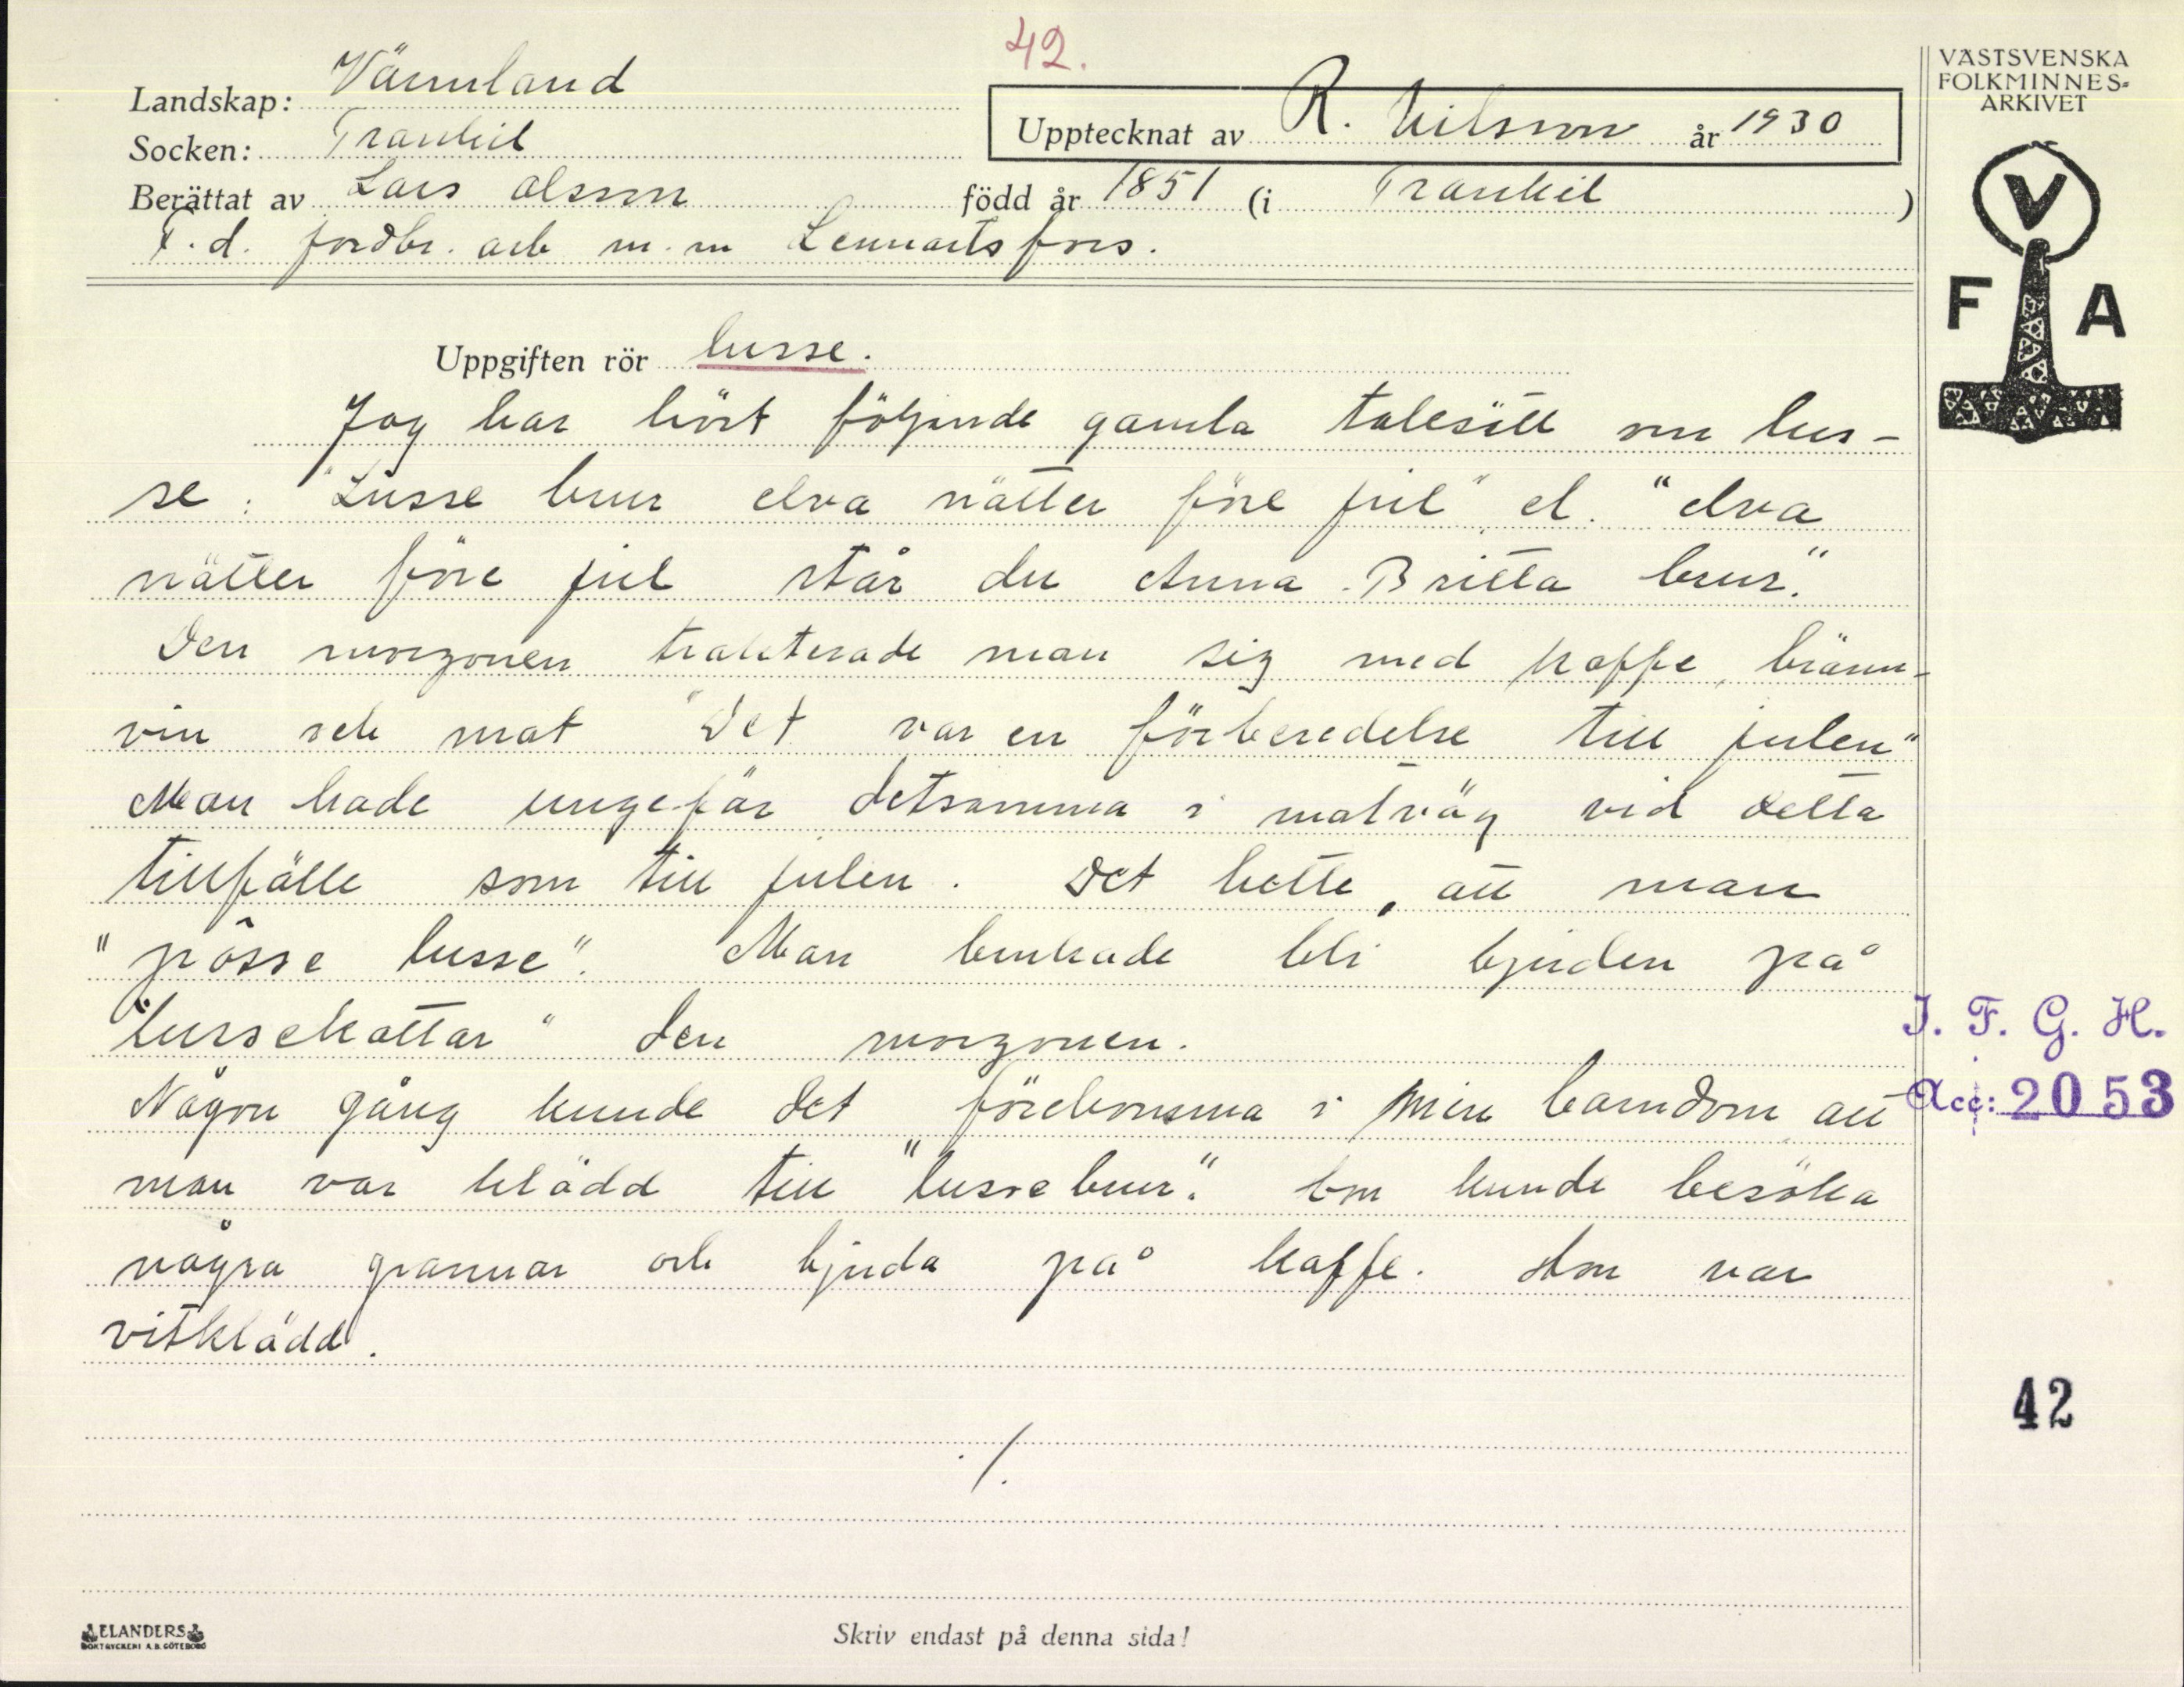 42.
Landskap: Värmland
Socken: Trankil
Upptecknat av R. Nilsson år 1930
Berättat av Lars Olsson född år 1851 (i Trankil)
F.d. jordbr. arb m.m Lennartsfors.
VÄSTSVENSKA
FOLKMINNES-
ARKIVET
V
F A
Uppgiften rör lusse.
Jag har hört följande gamla talesätt om lus-
se: "Lusse brur elva nätter före jul" el. "elva
nätter före jul står du Anna Britta brur."
Den morgonen trakterade man sig med kaffe, bränn-
vin och mat "Det var en förberedelse till julen"
Man hade ungefär detsamma i matväg vid detta
tillfälle som till julen. Det hette, att man
"pôsse lusse". Man brukade bli bjuden på
"lussekattar" den morgonen.
Någon gång kunde det förekomma i min barndom att
man var klädd till "lussebrur". Hon kunde besöka
några grannar och bjuda på kaffe. Hon var
vitklädd.
./.
I. F. G. H.
Acc: 2053
42
ELANDERS
BOKTRYCKERI A.B. GÖTEBORG
Skriv endast på denna sida!